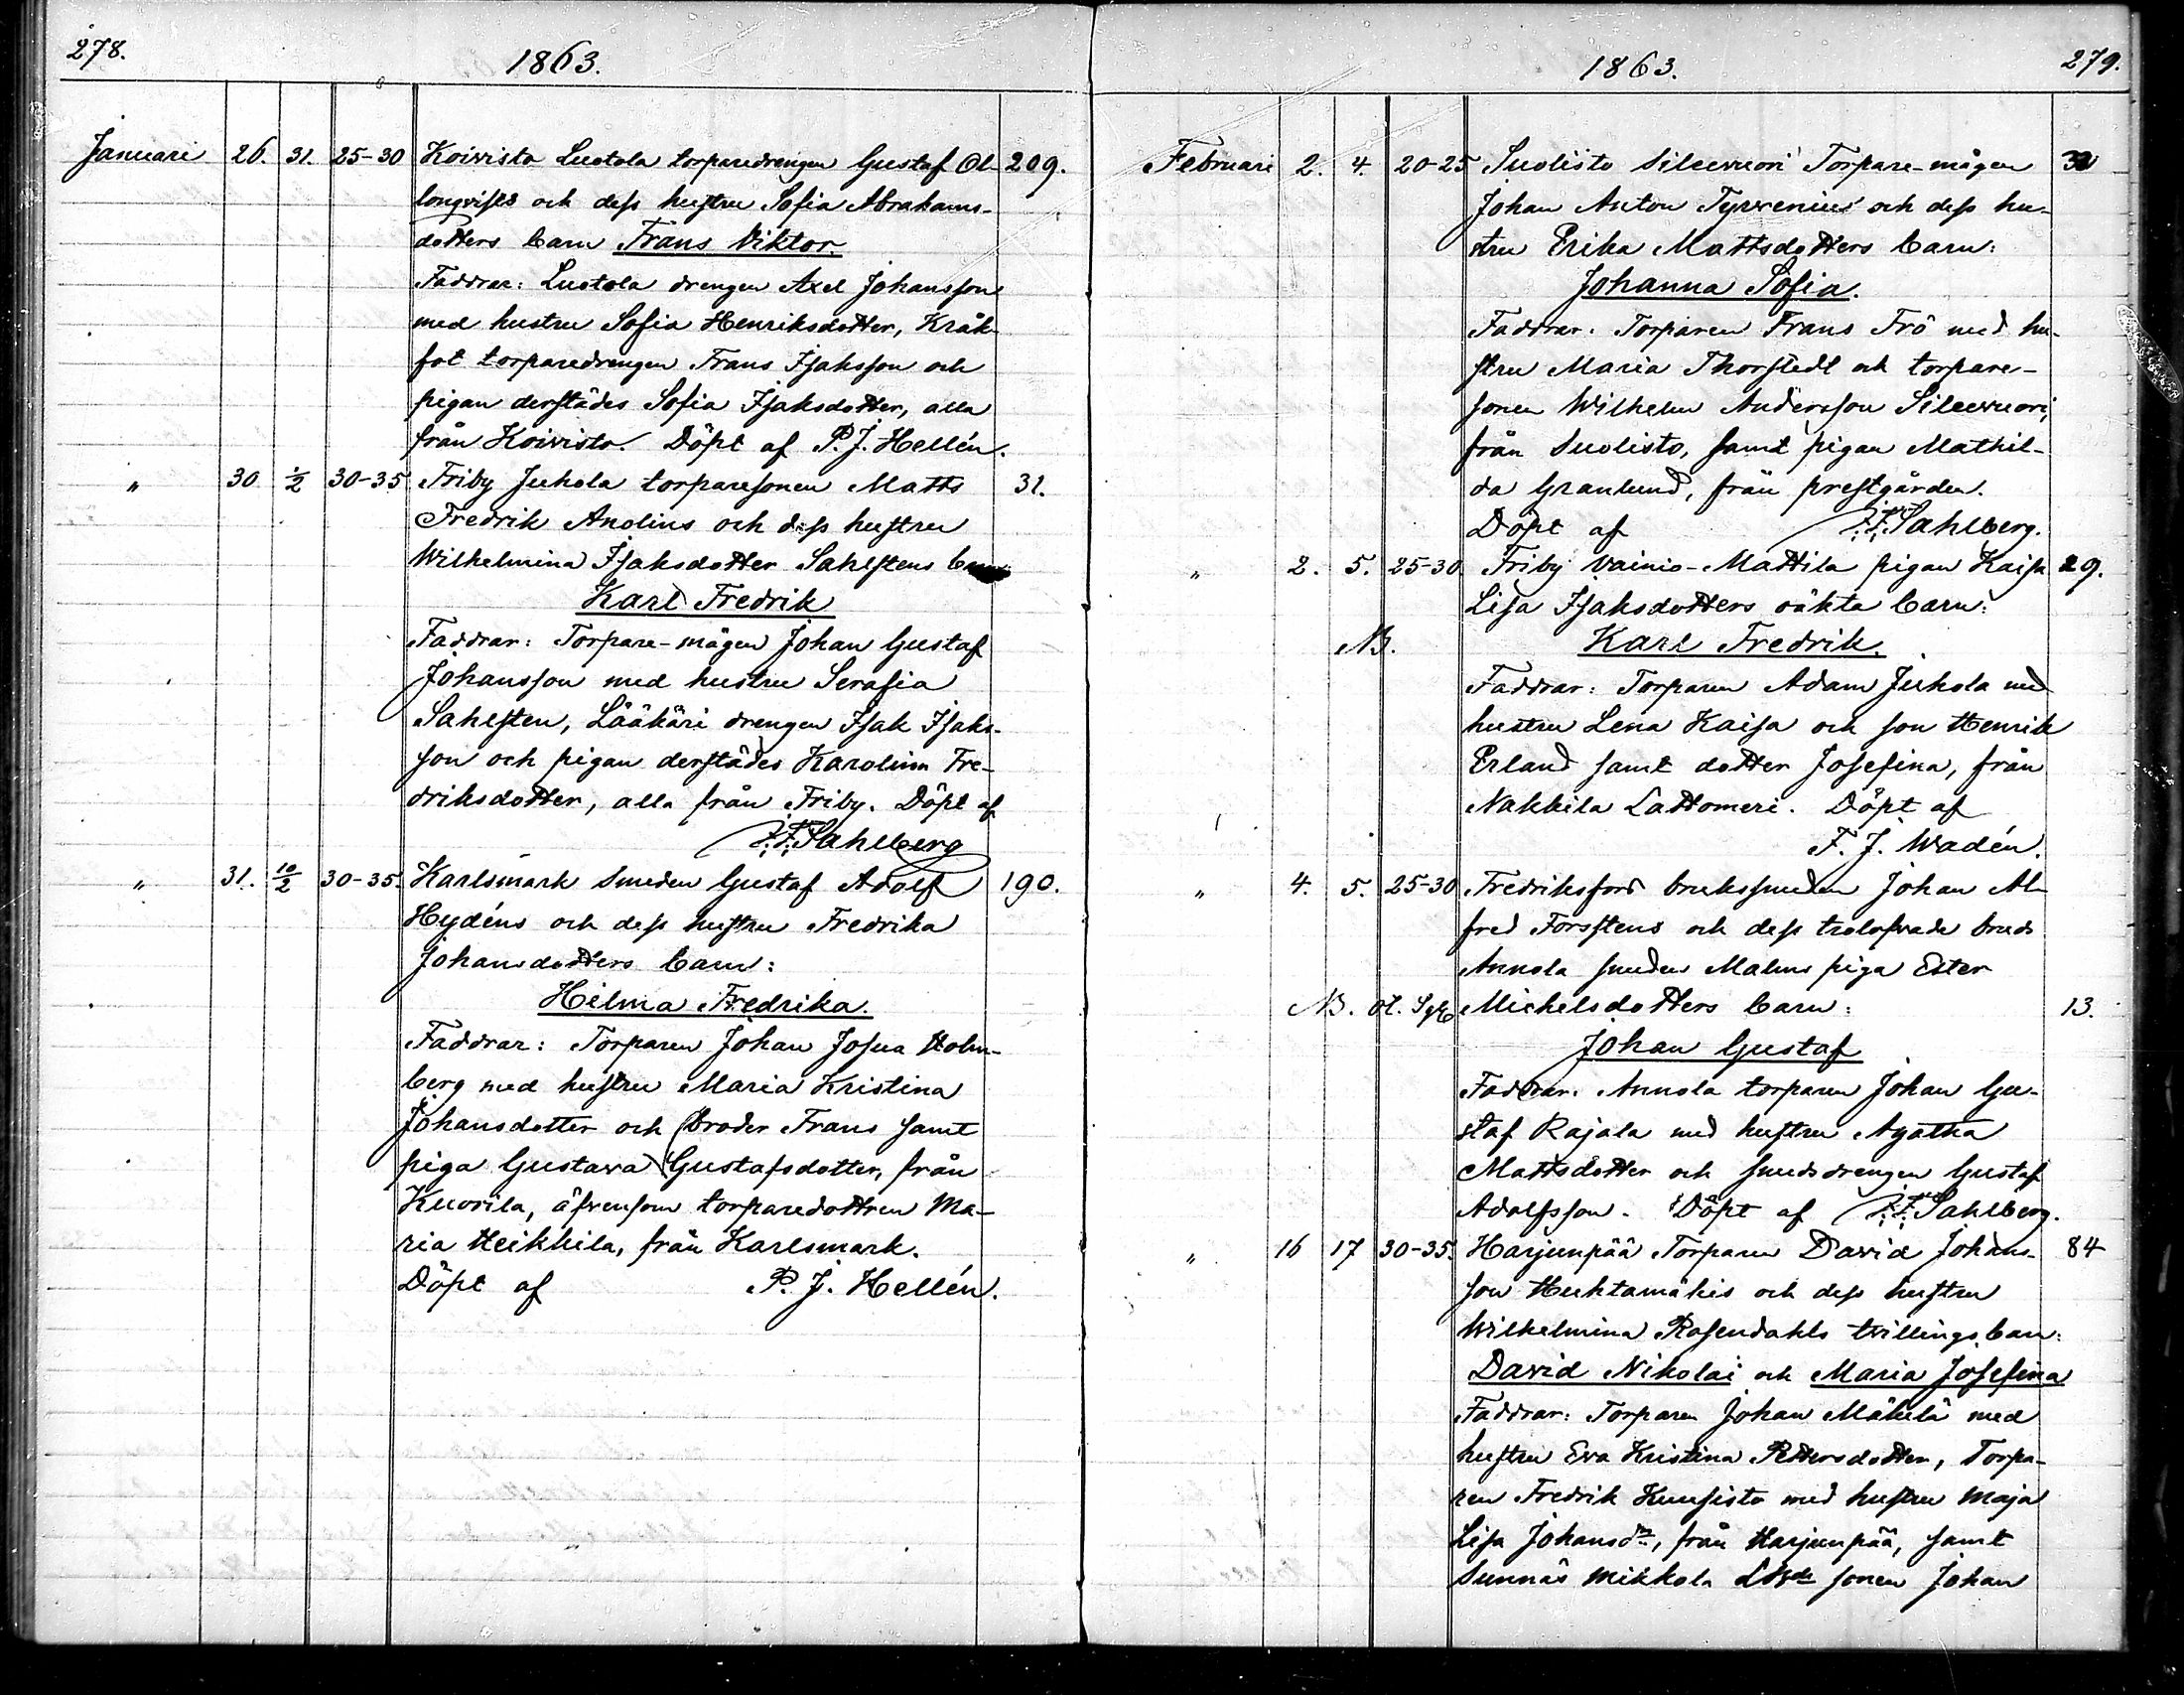 278.
1863.
Januari 26. 31. 25-30 Koivisto Luotola torparedrengen Gustaf Ol- 209.
longvists och dess hustru Sofia Abrahams-
dotters barn Frans Viktor.
Faddrar: Luotola drengen Axel Johansson
med hustru Sofia Henriksdotter, Kråk-
fot torparedrengen Frans Isaksson och
pigan derstädes Sofia Isaksdotter, alla
från Koivisto. Döpt af P. J. Hellén.
" 30 1/2 30-35 Friby Juhola torparesonen Matts 31.
Fredrik Anolins och dess hustru
Wilhelmina Isaksdotter Sahlstens
Karl Fredrik
Faddrar: Torpare-mågen Johan Gustaf
Johansson med hustru Serafia
Sahlsten, Lääkäri drengen Isak Isaks-
son och pigan derstädes Karolina Fre-
driksdotter, alla från Friby. Döpt af
F. F. Sahlberg
" 31. 10/2 30-35. Karlsmark Smeden Gustaf Adolf 190.
Hydéns och dess hustru Fredrika
Johansdotters barn:
Hilma Fredrika.
Faddrar: Torparen Johan Josua Holm-
berg med hustru Maria Kristina
Johansdotter och broder Frans samt
piga Gustava Gustafsdotter, från
Kuorila, äfvensom torparedottren Ma-
ria Heikkila, från Karlsmark.
Döpt af P. J. Hellén.
1863.
279.
Februari 2. 4. 20-25 Suolisto Sileevuori Torpare-mågen
Johan Anton Tyrvenius och dess hu-
stru Erika Mattsdotters barn:
Johanna Sofia.
Faddrar: Torparen Frans Frö med hu-
stru Maria Thorstedt och torpare-
sonen Wilhelm Andersson Sileevuori,
från Suolisto, samt pigan Mathil-
da Granlund, från prestgården.
Döpt af F. F. Sahlberg.
" 2. 5. 25-30 Friby Vainio-Mattila pigan Kaisa 29.
Lisa Isaksdotters oäkta barn:
NB. Karl Fredrik.
Faddrar: Torparen Adam Juhola med
hustru Lena Kaisa och son Henrik
Erland samt dotter Josefina, från
Nakkila Lattomeri. Döpt af
F. J. Wadén.
" 4. 5. 25-30 Fredriksfors brukssmeden Johan Al-
fred Forsstens och dess trolofvade brud
Annola smeden Malms piga Ester
NB. Michelsdotters barn: 13.
Johan Gustaf
Faddrar: Annola torparen Johan Gu-
staf Rajala med hustru Agatha
Mattsdotter och smedsdrengen Gustaf
Adolfsson. Döpt af F. F. Sahlberg.
" 16 17 30-35. Harjunpää Torparen David Johans- 84
son Huhtamäkis och dess hustru
Wilhelmina Rosendahls tvillings barn:
David Nikolai och Maria Josefina
Faddrar: Torparen Johan Mäkelä med
hustru Eva Kristina Pettersdotter, Torpa-
ren Fredrik Kuusisto med hustru Maja
Lisa Johansdr, från Harjunpää, samt
Sunnäs Mikkola sonen Johan